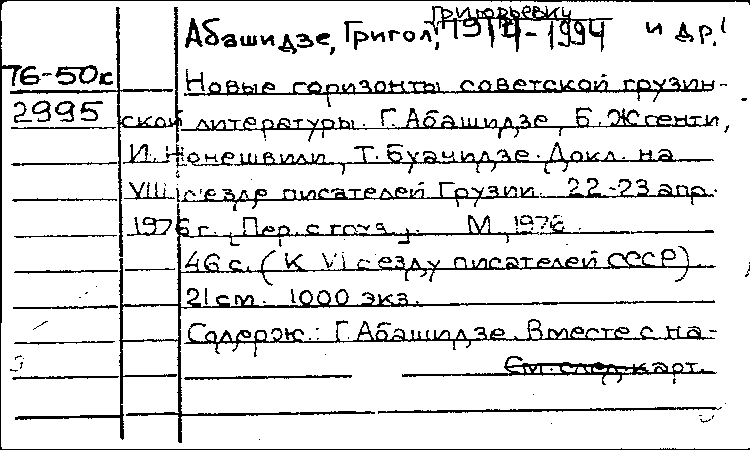 Григорьевич
Абашидзе, Григол, 1914-1994 и др.
76-50к Новые горизонты советской грузин-
2995 ской литературы. Г. Абашидзе, Б. Жгенти,
И. Нонешвили, Т. Буачидзе. Докл. на
VIII съезде писателей Грузии. 22-23 апр.
1976 г. [Пер. с груз.]. М., 1976.
46 с. (К VI съезду писателей СССР)
21 см. 1000 экз.
Содерж.: Г. Абашидзе. Вместе с на-
См. след. карт.